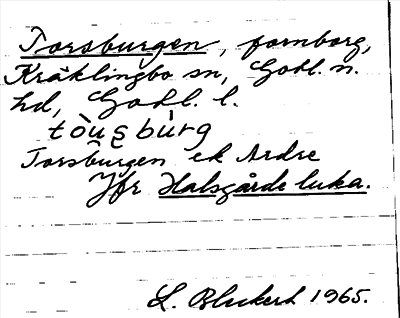 Torsburgen, fornborg,
Kräklingbo sn, Gotl. n.
hd, Gotl. l.
tòu̢s bùrg
Torsburgen ek Ardre
Jfr Halsgårde luka.
L. Blekert 1965.